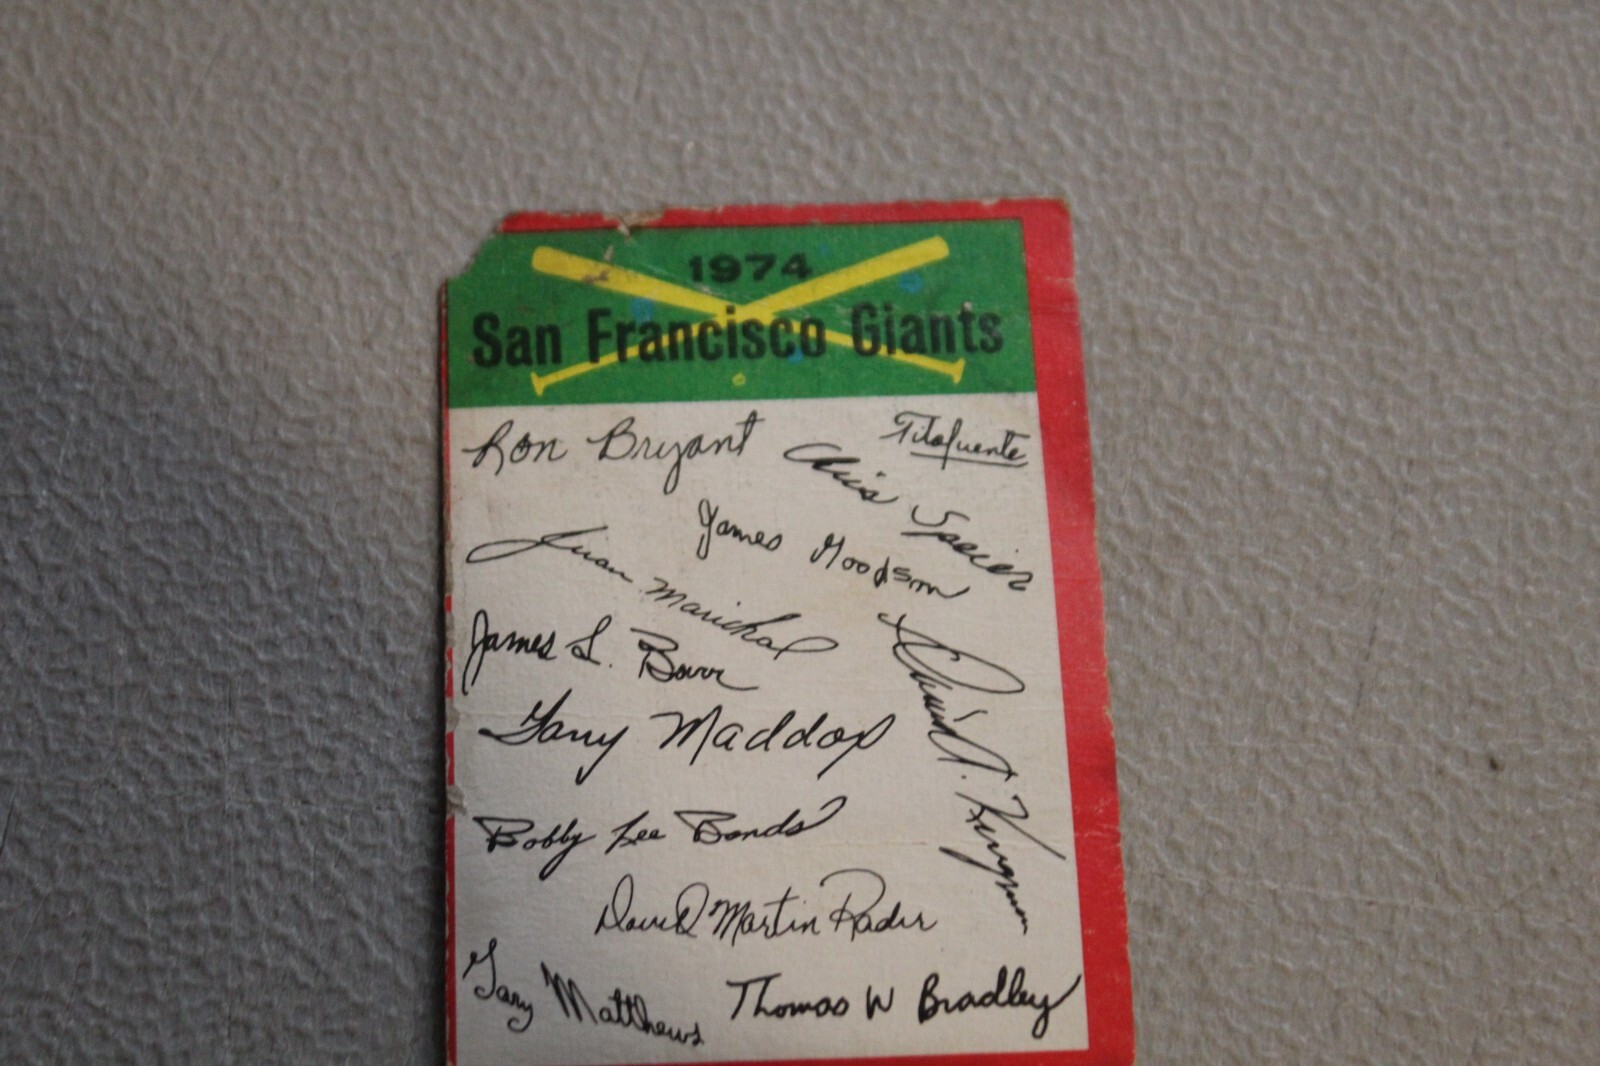 1974
San Francisco Giants
Ron Bryant
Tito Fuente
Chris Speier
James Goodson
Juan Marichal
James L. Barr
David A. Kingman
Garry Maddox
Bobby Lee Bonds
David Martin Rader
Gary Matthews
Thomas W Bradley